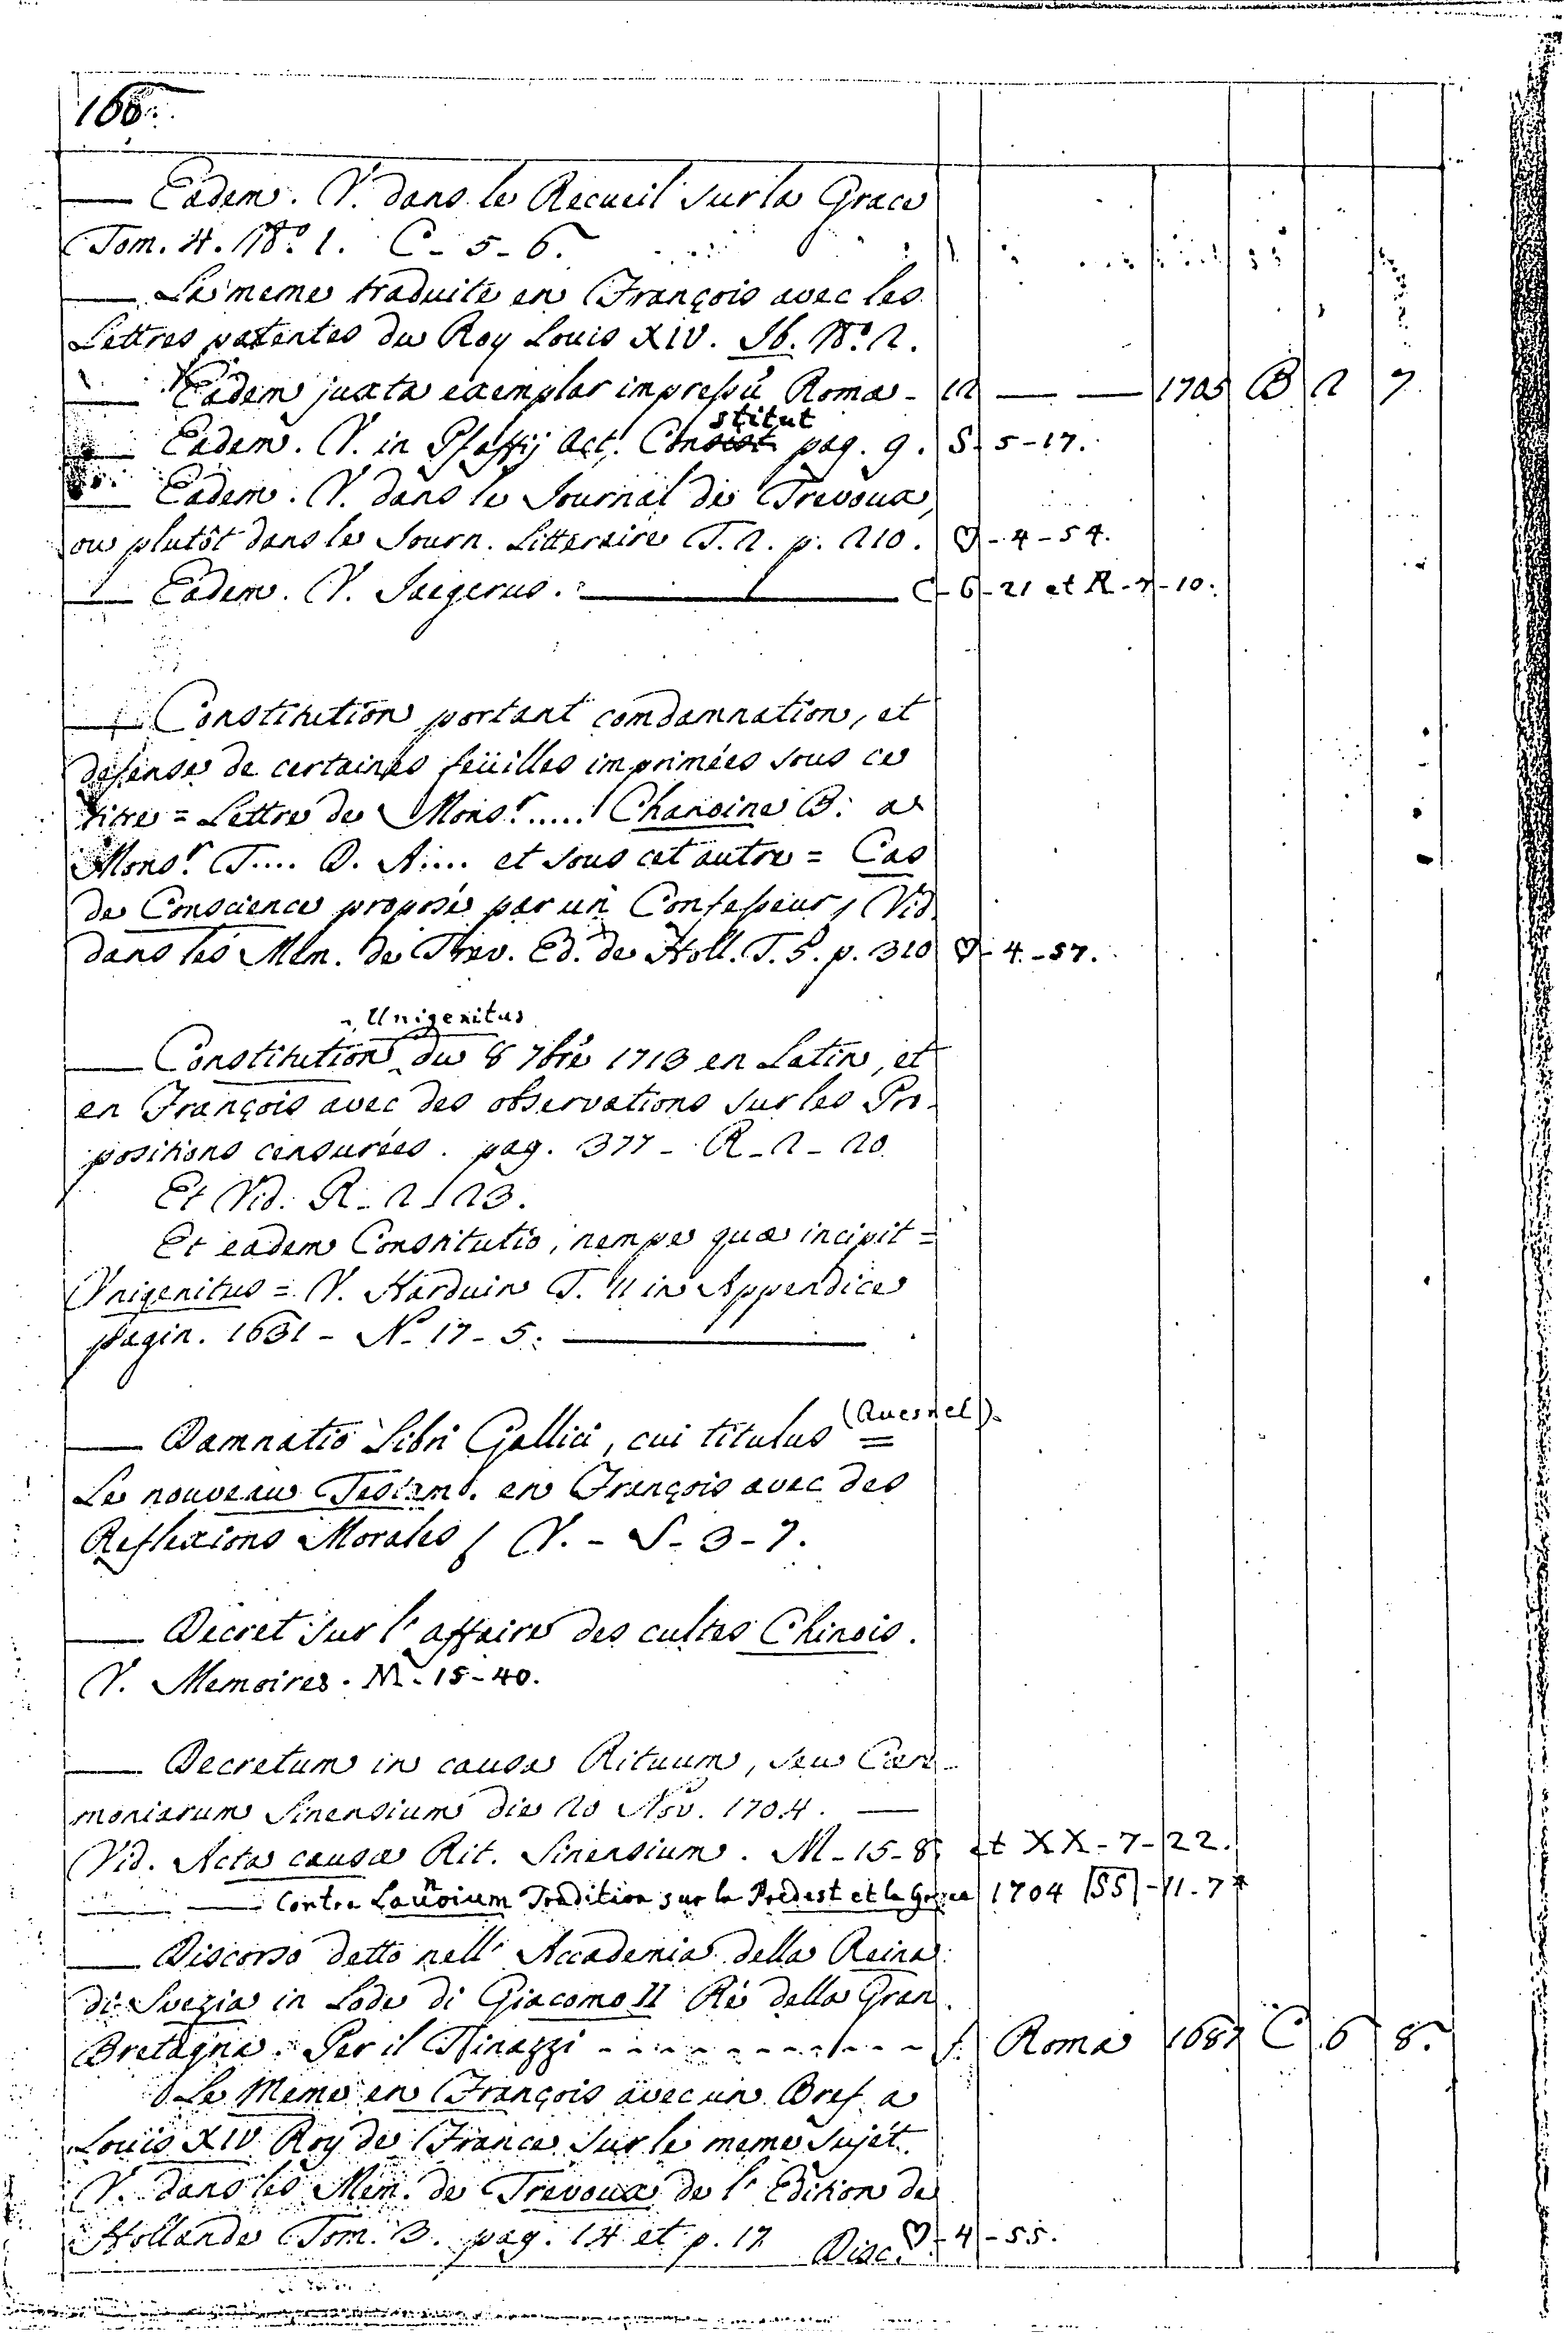 166.
— Eadem. V. dans le Recueil sur la Grace
Tom. 4. N.º 1. C - 5 - 6.
— La meme traduite en François avec les
Lettres patentes du Roy Louis XIV. Ib. N.º 2.
— Eadem juxta exemplar impressũ Romæ - 12 — — 1705 B 2 7
— Eadem. V. in Pfaffij Act. Constitut pag. 9. S - 5 - 17.
— Eadem. V. dans le Journal de Trevoux,
ou plutôt dans le Journ. Litteraire T. 2. p. 210. ♡ - 4 - 54.
— Eadem. V. Jaegerus. — C - 6 - 21 et R - 7 - 10.
— Constitution portant comdamnation, et
defense de certaines feüilles imprimées sous ce
titre = Lettre de Mons.r ..... Chanoine B. a
Mons.r T.... D. A.... et sous cet autre = Cas
de Conscience proposé par un Confesseur, Vid.
dans les Mem. de Trev. Ed. de Holl. T. 5. p. 310 ♡ - 4 - 57.
Unigenitus
— Constitution du 8 7bre 1713 en Latin, et
en François avec des observations sur les Pro-
positions censurées. pag. 377 - R - 2 - 20.
Et Vid. R - 2 - 23.
Et eadem Constitutio, nempe quæ incipit =
Vnigenitus = V. Harduin T. 11 in Appendice
pagin. 1631 - N - 17 - 5. —
(Quesnel).
— Damnatio Libri Gallici, cui titulus =
Le nouveau Testam.t en François avec des
Reflexions Morales / V. - S - 3 - 7.
— Decret sur l'affaire des cultes Chinois.
V. Memoires. M - 15 - 40.
— Decretum in causa Rituum, seu Cære-
moniarum Sinensium die 20 Nov. 1704. —
Vid. Acta causæ Rit. Sinensium. M - 15 - 8. et XX - 7 - 22.
— — Contra Launoium Tradition sur la Predest et la Grace 1704 SS - 11 - 7 *
— Discorso detto nell' Accademia della Reina
di Svezia in Lode di Giacomo II Rè della Gran
Bretagna. Per il - - - - - - f. Roma 1687 C 6 8.
Le Meme en François avec un Bref a
Louis XIV Roy de France sur le meme sujét.
V. dans les Mem. de Trevoux de l'Edition de
Hollande Tom. 3. pag. 14 et p. 17 ♡ - 4 - 55.
Disc.